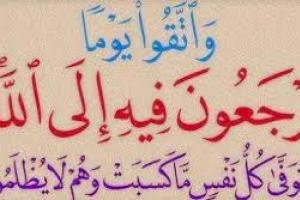 وَٱتَّقُوا۟ يَوْمًا
رْجَعُونَ فِيهِ إِلَى ٱللَّهِ
تُوَفَّىٰ كُلُّ نَفْسٍ مَّا كَسَبَتْ وَهُمْ لَا يُظْلَمُو